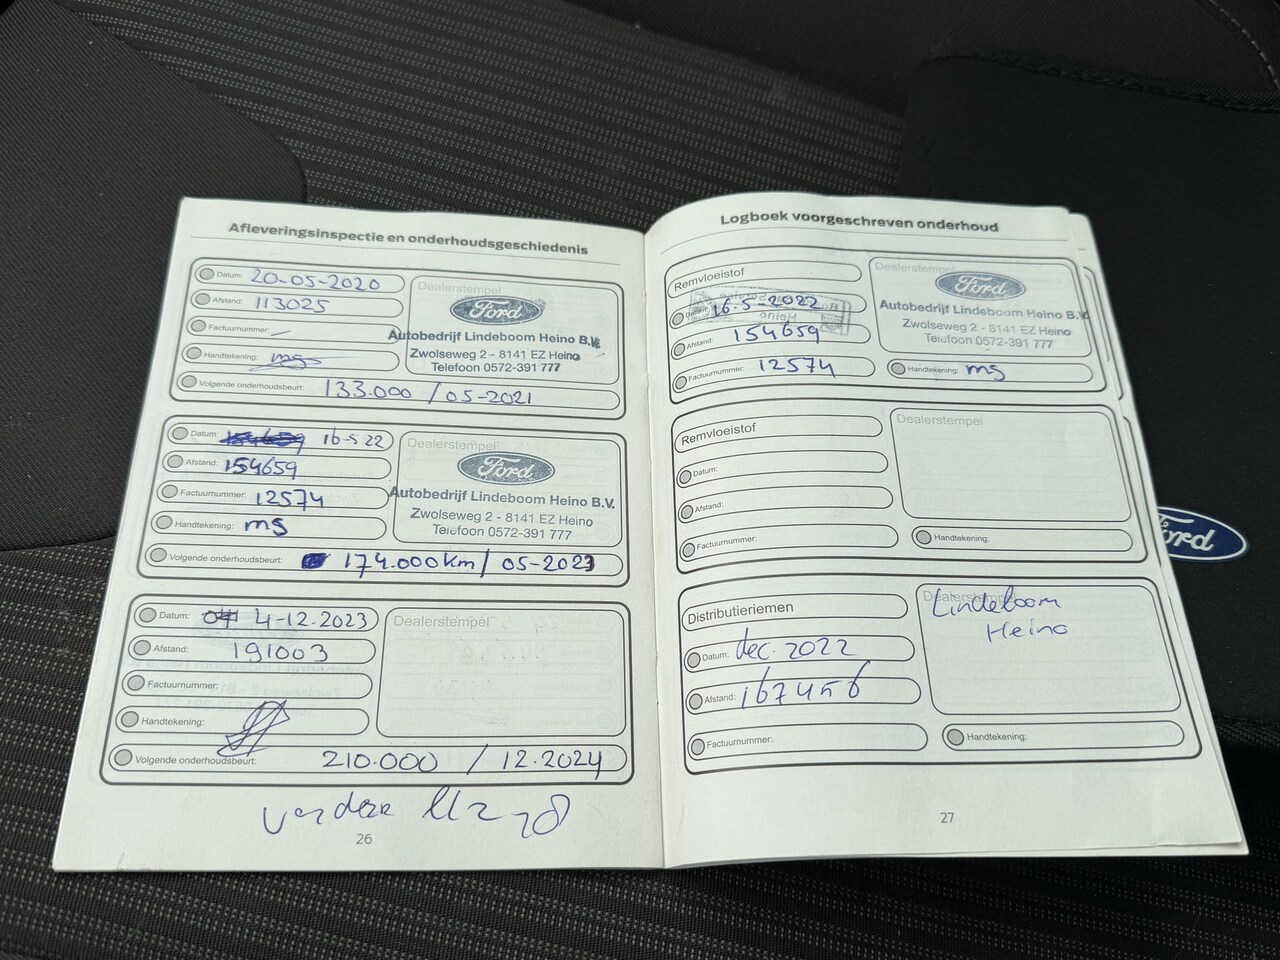 Afleveringsinspectie en onderhoudsgeschiedenis
Datum: 20-05-2020
Afstand: 113025
Factuurnummer: -
Handtekening: ms
Volgende onderhoudsbeurt: 133.000 / 05-2021
Dealerstempel
Ford
Autobedrijf Lindeboom Heino B.V.
Zwolseweg 2 - 8141 EZ Heino
Telefoon 0572-391 777
Datum: 16-5 22
Afstand: 154659
Factuurnummer: 12574
Handtekening: ms
Volgende onderhoudsbeurt: 174.000km / 05-2023
Dealerstempel
Ford
Autobedrijf Lindeboom Heino B.V.
Zwolseweg 2 - 8141 EZ Heino
Telefoon 0572-391 777
Datum: 4-12.2023
Afstand: 191003
Factuurnummer:
Handtekening:
Volgende onderhoudsbeurt: 210.000 / 12.2024
Dealerstempel
26
Logboek voorgeschreven onderhoud
Remvloeistof
Datum: 16-5-2022
Afstand: 154659
Factuurnummer: 12574
Dealerstempel
Ford
Autobedrijf Lindeboom Heino B.V.
Zwolseweg 2 - 8141 EZ Heino
Telefoon 0572-391 777
Handtekening: ms
Remvloeistof
Datum:
Afstand:
Factuurnummer:
Dealerstempel
Handtekening:
Distributieriemen
Datum: dec. 2022
Afstand: 167456
Factuurnummer:
Dealerstempel
Lindeboom
Heino
Handtekening:
27
Ford